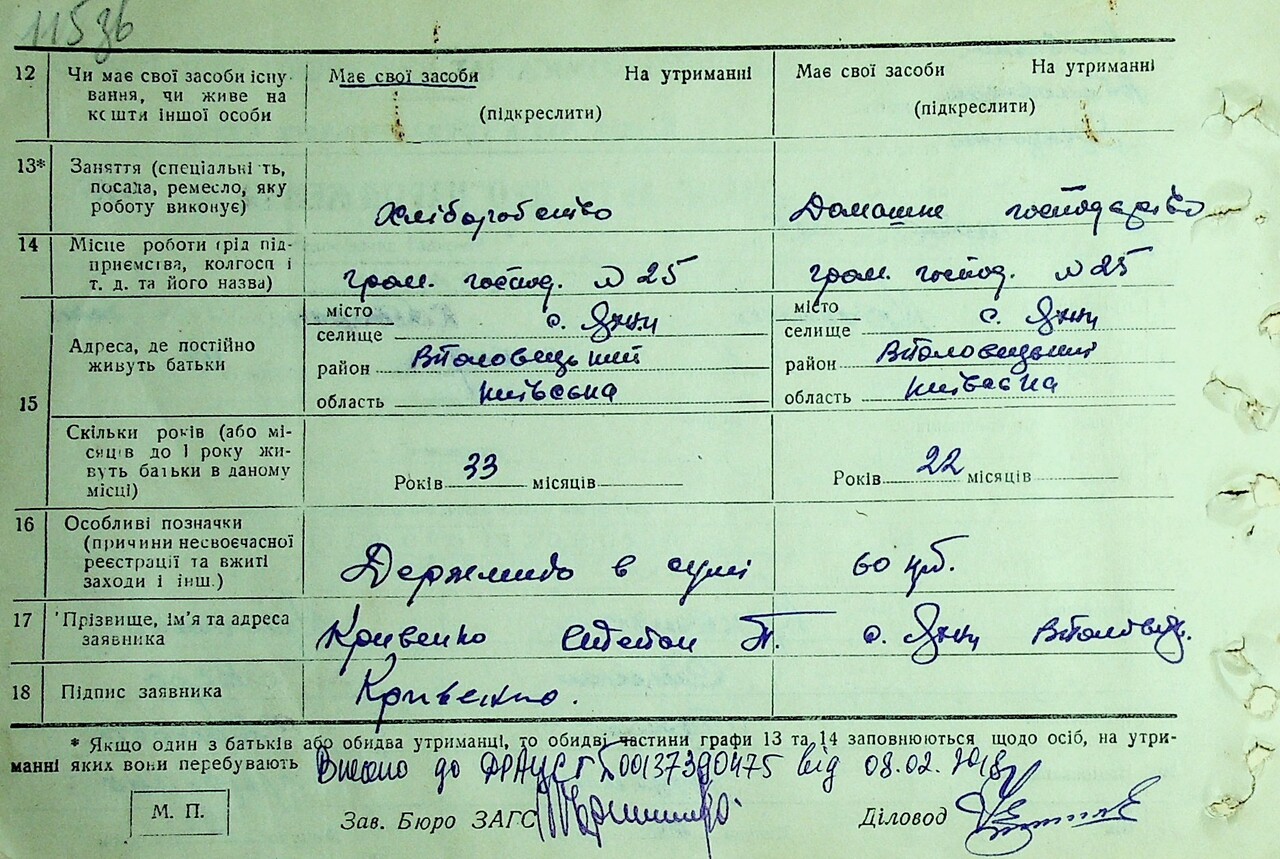 115зб
12 Чи має свої засоби існування, чи живе на кошти іншої особи
Має свої засоби На утриманні
(підкреслити)
Має свої засоби На утриманні
(підкреслити)
13* Заняття (спеціальність, посада, ремесло, яку роботу виконує)
Хліборобство
Домашнє господарство
14 Місце роботи (рід підприємства, колгосп і т. д. та його назва)
гром. господ. № 25
гром. господ. № 25
15 Адреса, де постійно живуть батьки
місто
селище с.
район
область Київська
місто
селище с.
район
область Київська
Скільки років (або місяців до 1 року живуть батьки в даному місці)
Років 33 місяців
Років 22 місяців
16 Особливі позначки (причини несвоєчасної реєстрації та вжиті заходи і інш.)
Держмито в сумі 60 крб.
17 Прізвище, ім'я та адреса заявника
Кривенко Степан П. с.
18 Підпис заявника
Кривенко.
* Якщо один з батьків або обидва утриманці, то обидві частини графи 13 та 14 заповнюються щодо осіб, на утри-
манні яких вони перебувають
Внесено до ДРАЦСГ 00137390475 від 08.02.2018
М. П.
Зав. Бюро ЗАГС
Діловод